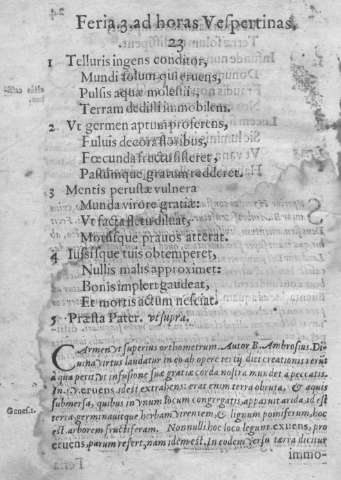 Feria.3.ad horas Vespertinas,
23
1 Telluris ingens conditor,
Mundi solum qui eruens,
Pulsis aquæ molestiis,
Terram dedisti immobilem.
2 Vt germen aptum proferens,
Fuluis decora floribus,
Fœcunda fructu sisteret,
Pastumque gratum redderet.
3 Mentis perustæ vulnera
Munda virore gratiæ:
Vt facta fletu diluat,
Motusque prauos atterat.
4 Iussisque tuis obtemperet,
Nullis malis approximet:
Bonis impleri gaudeat,
Et mortis actum nesciat.
5 Præsta Pater. vt supra.
CArmen vt superius orthometrum. Autor B. Ambrosius. Di-
uina virtus laudatur in eo ab opere tertij diei creationis: erūt
à qua petit vt infusione suæ gratiæ corda nostra mundet a peccatis.
In. eruens, id est extrahens: erat enim terra obruta, & aquis
submersa, quibus in vnum locum congregatis, apparuit arida, id est
Genes.1. terra, germinauitque herbam virentem, & lignum pomiferum, hoc
est arborem fructiferam. Nonnulli hoc loco legunt exuens, pro
eruens, parum refert, nam idem est. In eodem versu terra dicitur
immo-